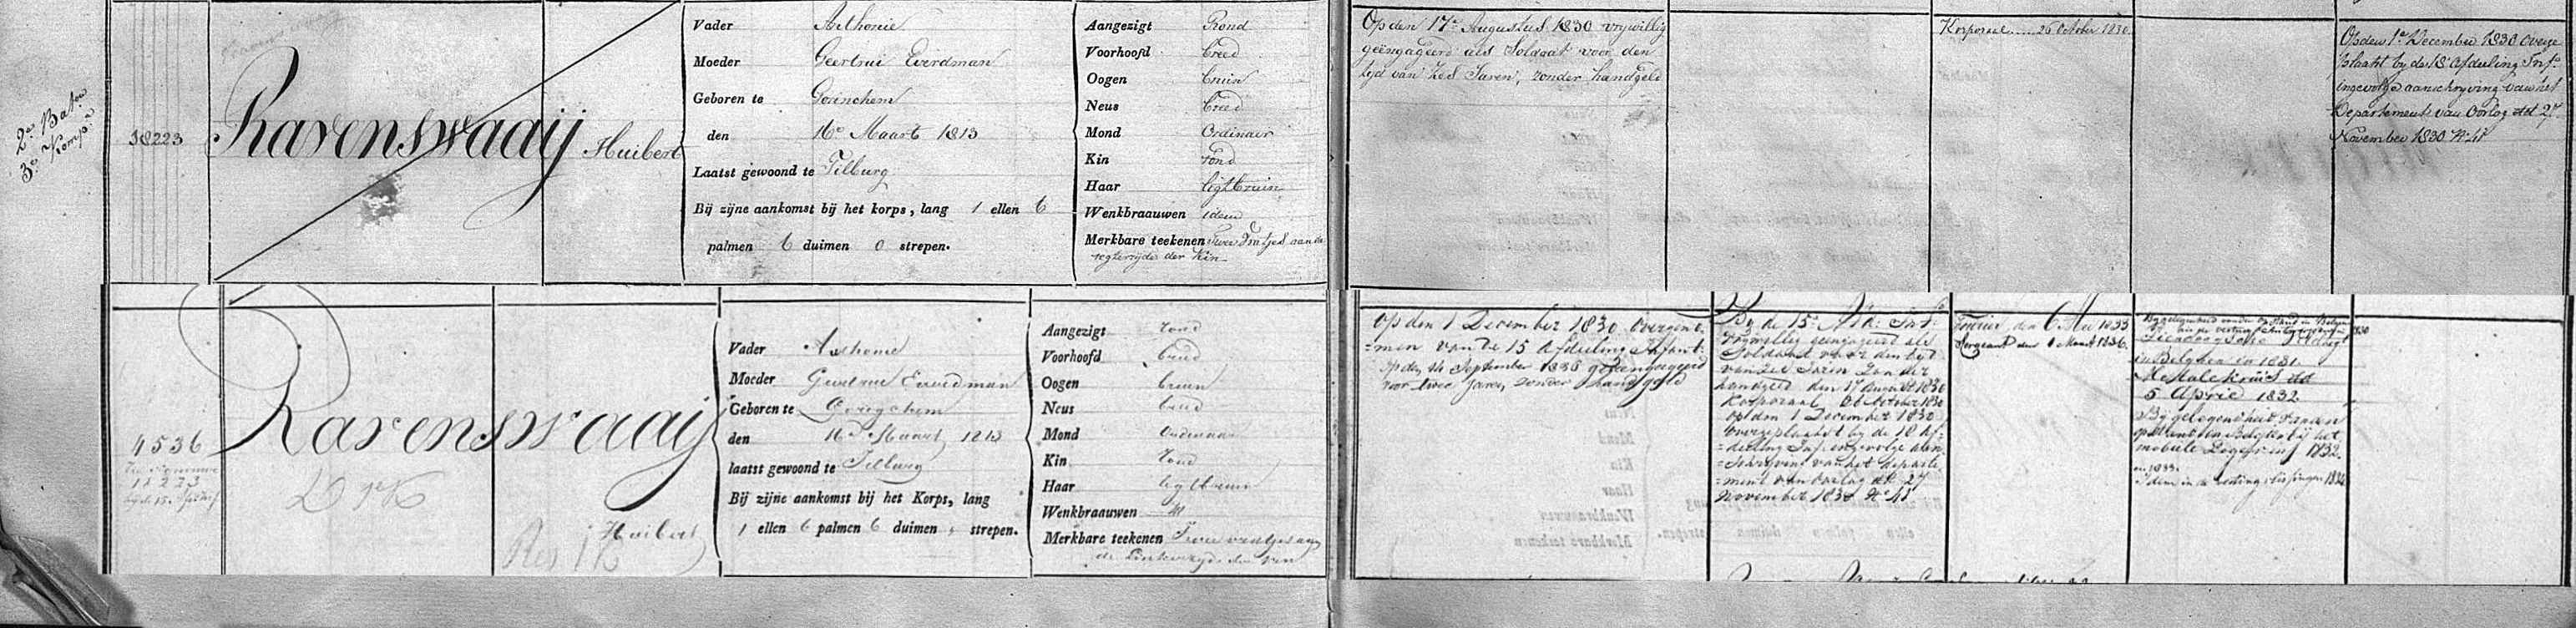 2e Bat.
3e Komp.
18223
Ravenswaaij
Huibert
Vader Anthonie
Moeder Geertrui Everdman
Geboren te Gorinchem
den 16e Maart 1813
Laatst gewoond te Tilburg
Bij zijne aankomst bij het korps, lang 1 ellen 6
palmen 6 duimen 0 strepen.
Aangezigt Rond
Voorhoofd breed
Oogen bruin
Neus breed
Mond Ordinair
Kin rond
Haar ligtbruin
Wenkbraauwen idem
Merkbare teekenen Twee Fratjes aan de
regterzijde der Kin
Op den 17e Augustus 1830 vrijwillig
geëngageerd als Soldaat voor den
tijd van Zes Jaren, zonder handgeld
Korporaal 26 October 1830
Op den 1e December 1830 overge
plaatst by de 18e Afdeeling Inf.
ingevolge aanschryving van het
Departement van Oorlog dd 27
November 1830 No 41
4536
18223
bij de 15. Afdeel
Ravenswaaij
Huibert
Vader Anthonie
Moeder Geertrui Everdman
Geboren te Gorigchem
den 16e Maart 1813
laatst gewoond te Tilburg
Bij zijne aankomst bij het Korps, lang
1 ellen 6 palmen 6 duimen strepen.
Aangezigt rond
Voorhoofd breed
Oogen bruin
Neus breed
Mond Ordinair
Kin rond
Haar ligtbruin
Wenkbraauwen id
Merkbare teekenen Twee aan
de Linkerzyde der
Op den 1 December 1830 overgeno
=men van de 15 Afdeeling Infant:
Op den 14 September 1836 geëngageerd
voor twee Jaren, zonder handgeld
By de 15e Afd: Inf:
Vrywillig geëngageerd als
Soldaat voor den tyd
van Zes Jaren zonder
handgeld den 17 Augustus 1830
Korporaal 26 October 1830
Op den 1 December 1830
overgeplaatst by de 18 Af=
=deeling Inf. ingevolge aan=
=schryving van het departe
=ment van Oorlog dd 27
November 1830 No 41
Fourier den 6 Mei 1833
Sergeant den 1 Maart 1836
By gelegenheid van den opstand in Belgie
1830
Tiendaagsche Veldtogt
in Belgien in 1831.
Metale kruis dd
5 April 1832
By gelegenheid
mobiele Leger in 1832.
en 1833.
Idem in de vesting Vlissingen 1834